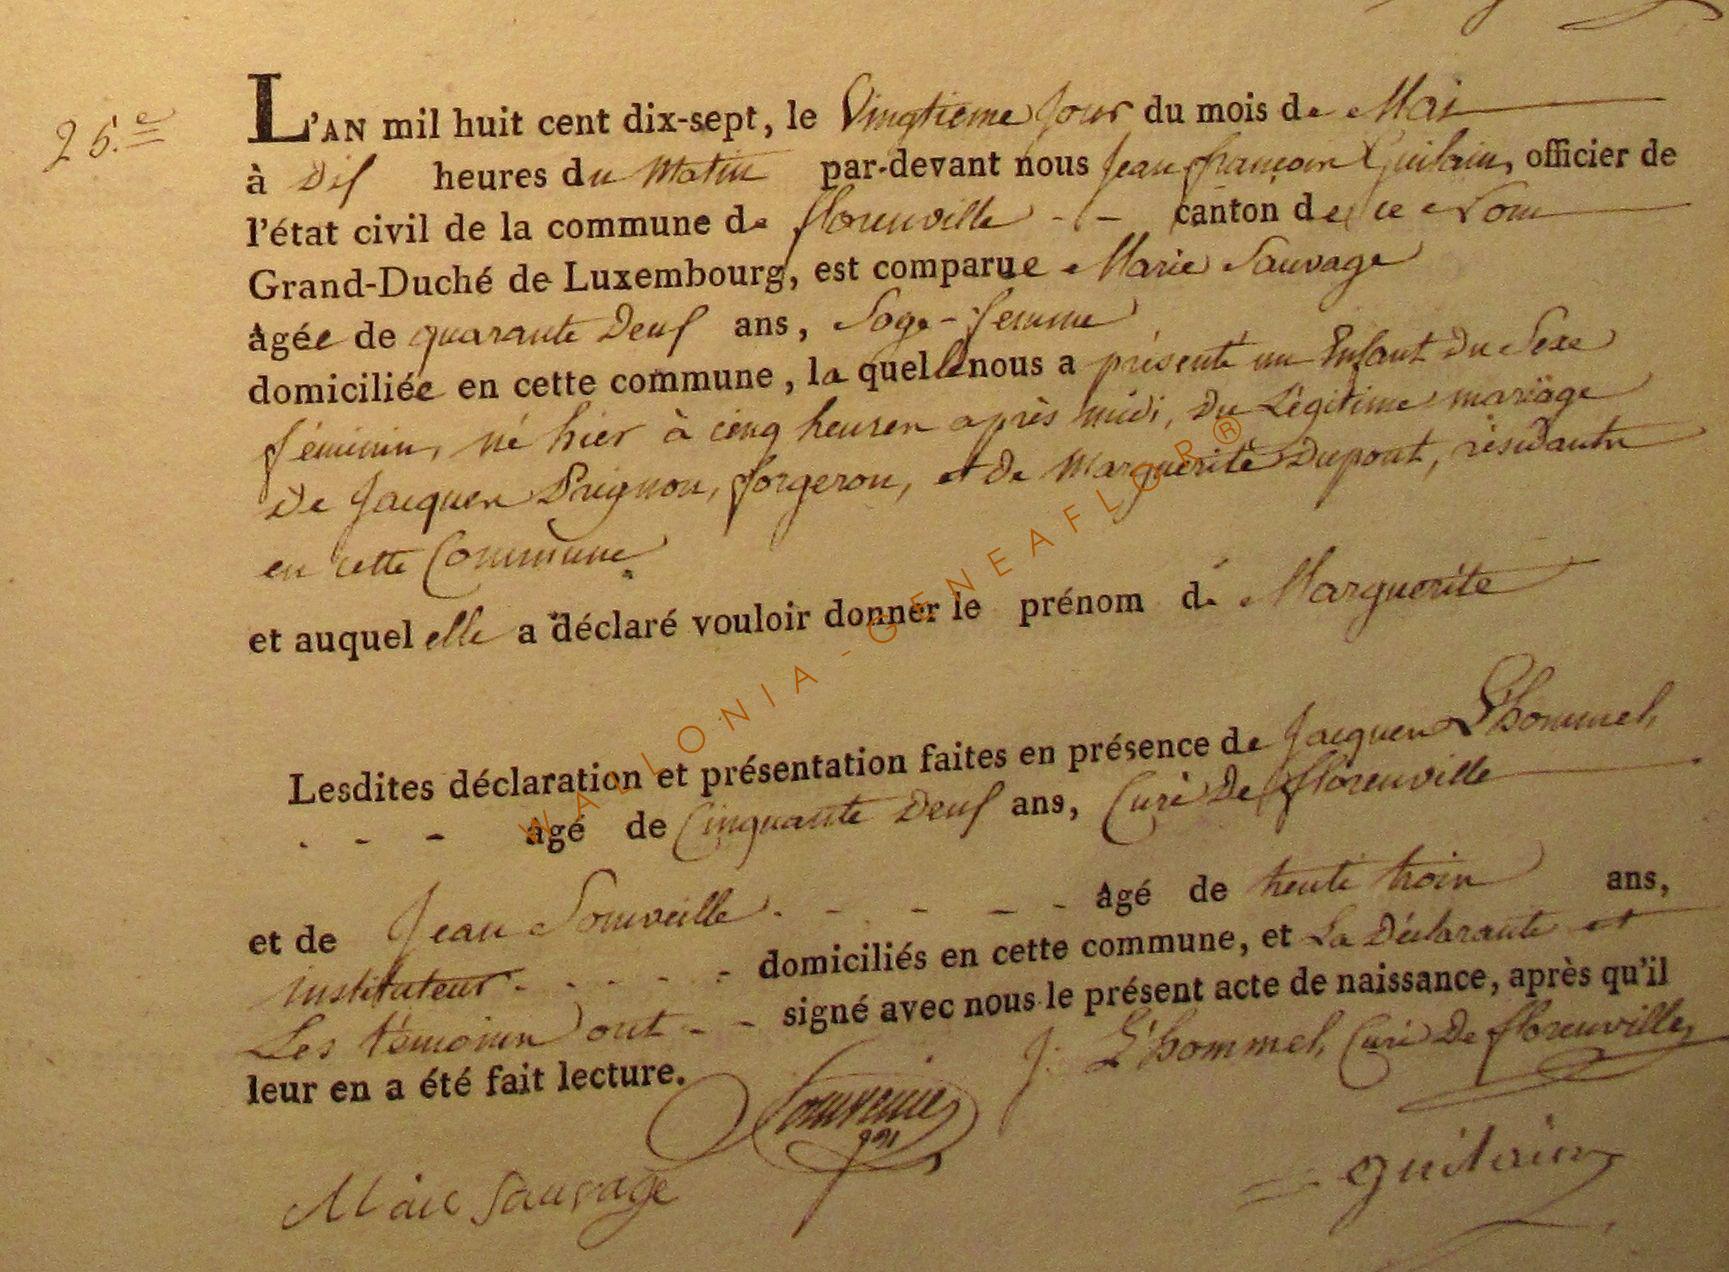 25.e
L'AN mil huit cent dix-sept, le Vingtieme Jour du mois de Mai
à Dix heures du Matin par-devant nous Jean françois Guilain, officier de
l'état civil de la commune de florenville - - canton de ce Nom
Grand-Duché de Luxembourg, est comparue Marie Sauvage
âgée de quarante Deux ans, Sage-femme
domiciliée en cette commune, la quelle nous a présenté un Enfant du Sexe
féminin, né hier à cinq heures après midi, du Légitime mariage
De Jacques Prignon, forgeron, et de Marguerite Dupont, résidants
en cette Commune
et auquel elle a déclaré vouloir donner le prénom de Marguerite
Lesdites déclaration et présentation faites en présence de Jacques L'hommel,
. - - âgé de Cinquante Deux ans, Curé De florenville
et de Jean Sourveille . - - - - - âgé de trente trois ans,
instituteur - - - - - domiciliés en cette commune, et La Déclarante et
Les témoins ont - - signé avec nous le présent acte de naissance, après qu'il
leur en a été fait lecture.
J. L'hommel, Curé De florenville,
Marie Sauvage
guilain
WALLONIA - GENEAFLOR ®